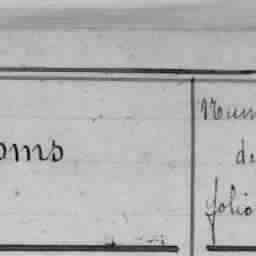 oms
Num
de
folio